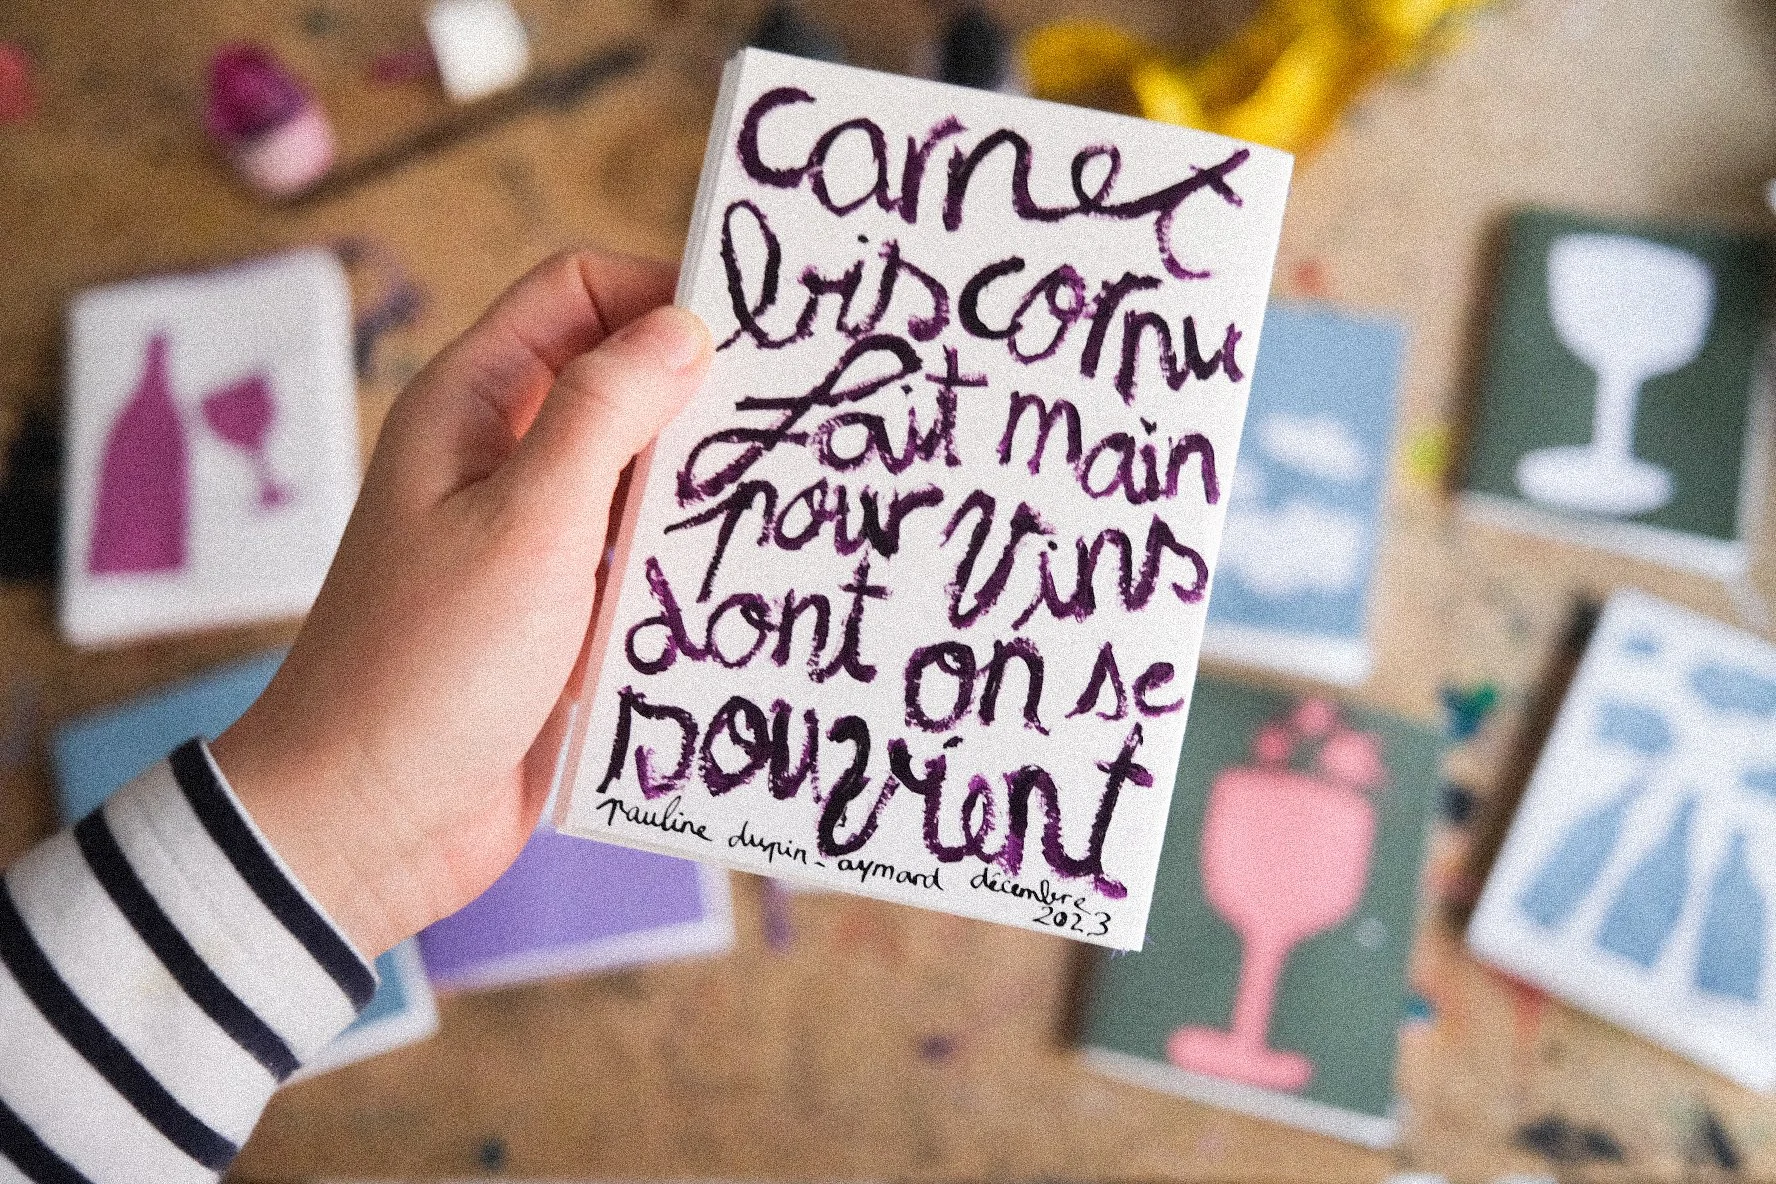 carnet
biscornu
fait main
pour vins
dont on se
souvient
pauline dupin-aymard décembre
2023